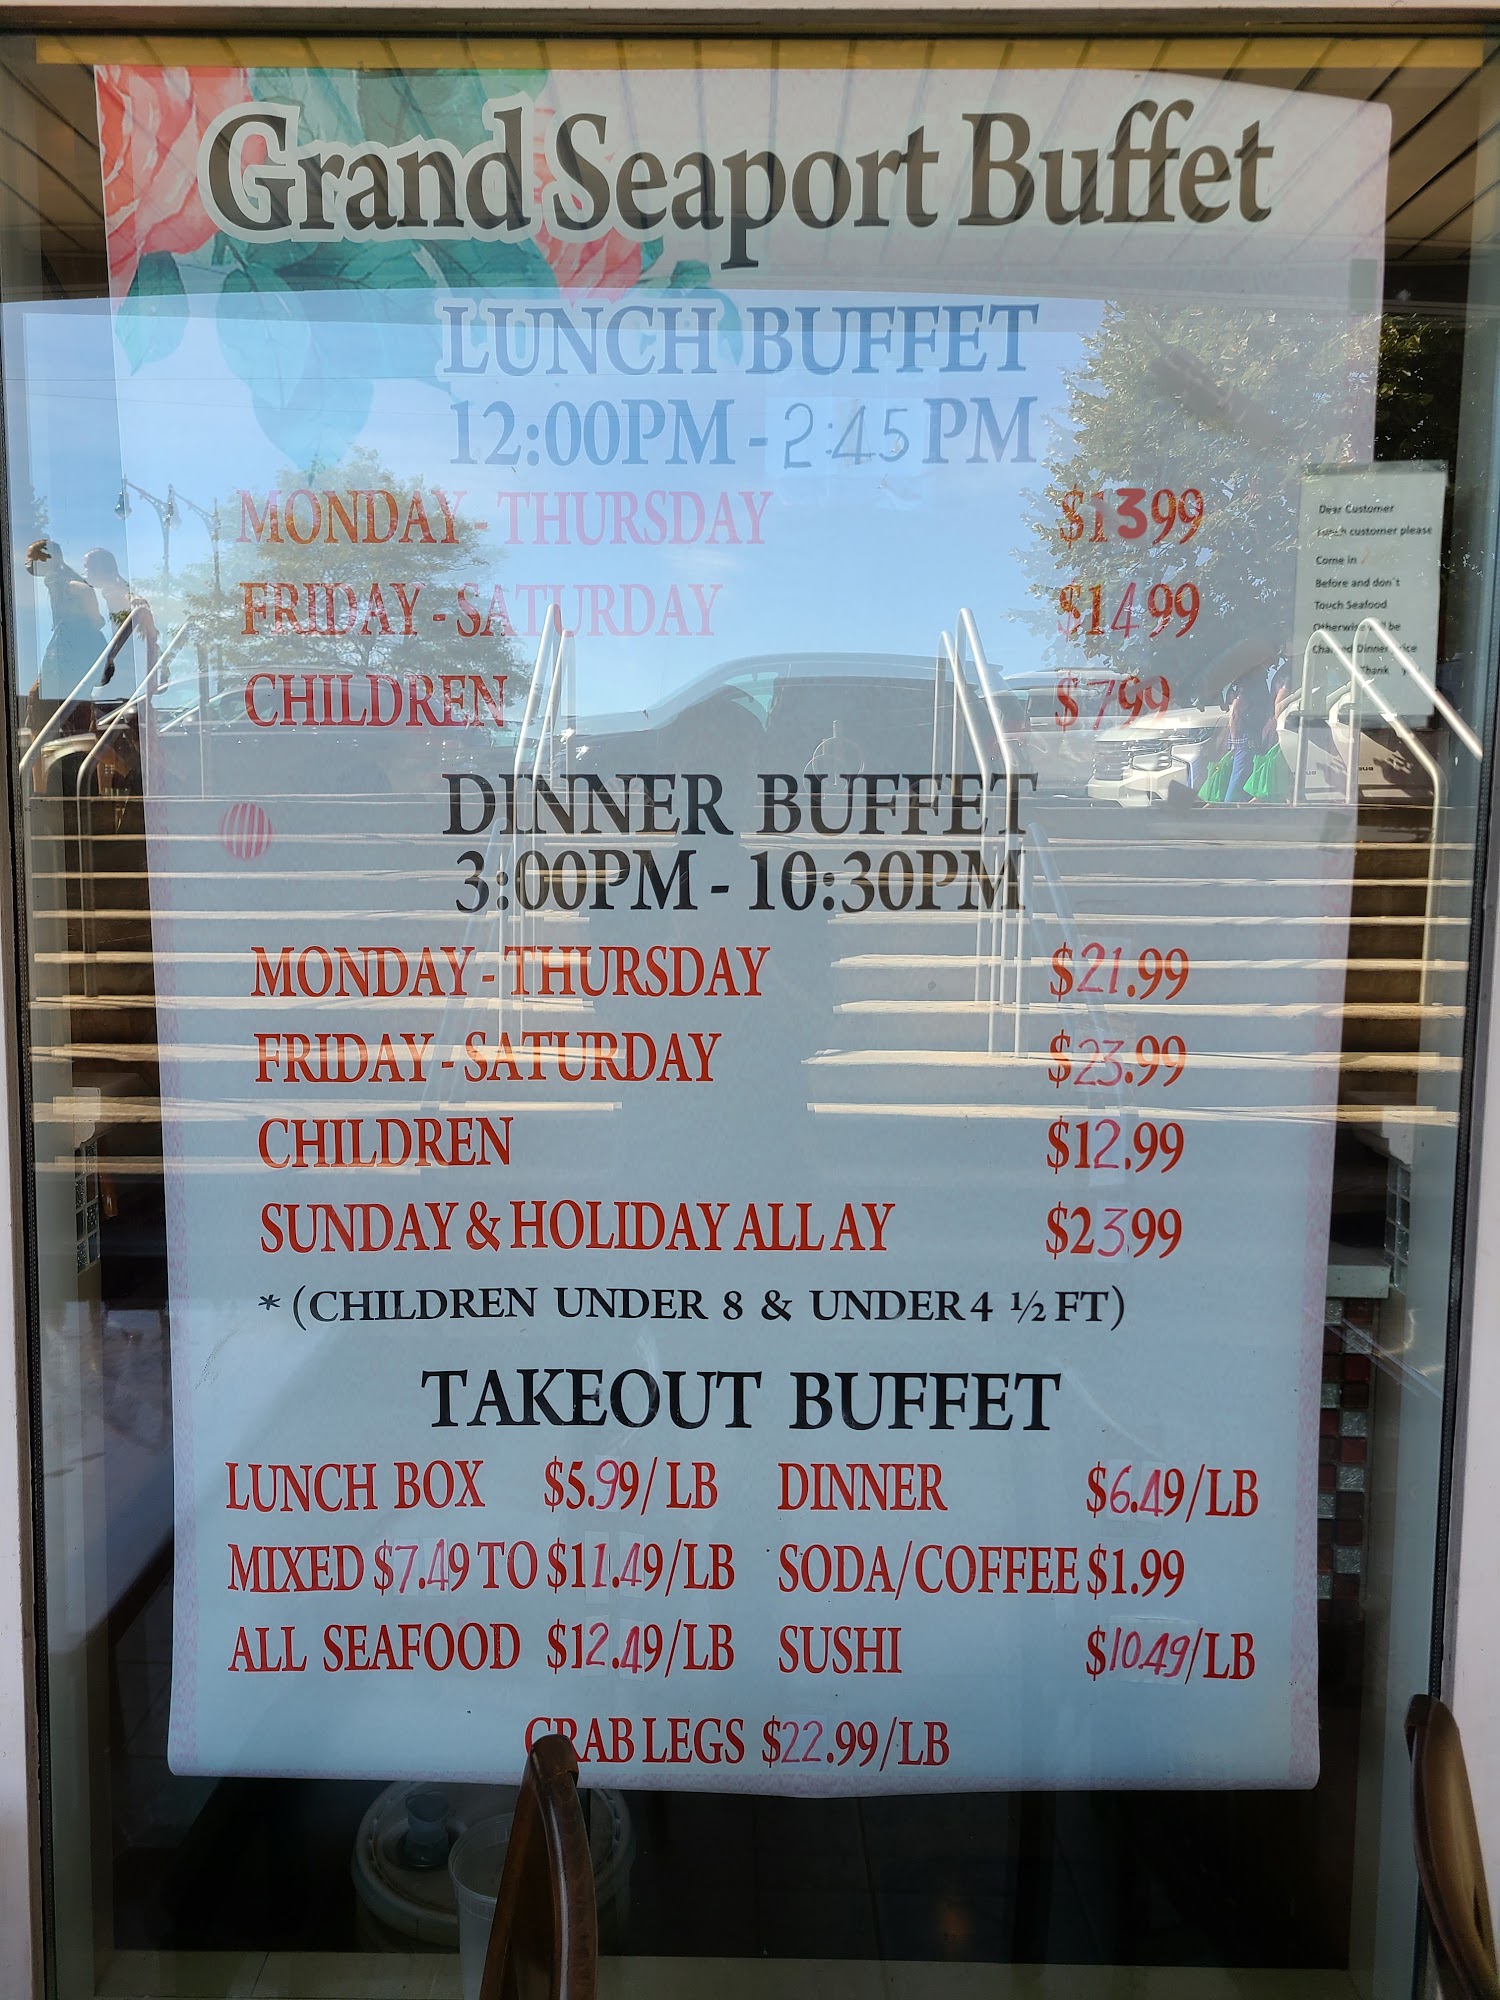 Grand Seaport Buffet
LUNCH BUFFET
12:00PM - 2:45 PM
MONDAY - THURSDAY $1399
FRIDAY - SATURDAY $1499
CHILDREN $799
DINNER BUFFET
3:00PM - 10:30PM
MONDAY - THURSDAY $21.99
FRIDAY - SATURDAY $23.99
CHILDREN $12.99
SUNDAY & HOLIDAY ALL AY $2399
* (CHILDREN UNDER 8 & UNDER 4 ½ FT)
TAKEOUT BUFFET
LUNCH BOX $5.99/ LB DINNER $6.49/LB
MIXED $7.49 TO $11.49/LB SODA/COFFEE $1.99
ALL SEAFOOD $12.49/LB SUSHI $10.49/LB
CRAB LEGS $22.99/LB
Dear Customer
Lunch customer please
Come in
Before and don't
Touch Seafood
Otherwise be
Dinner
Thank